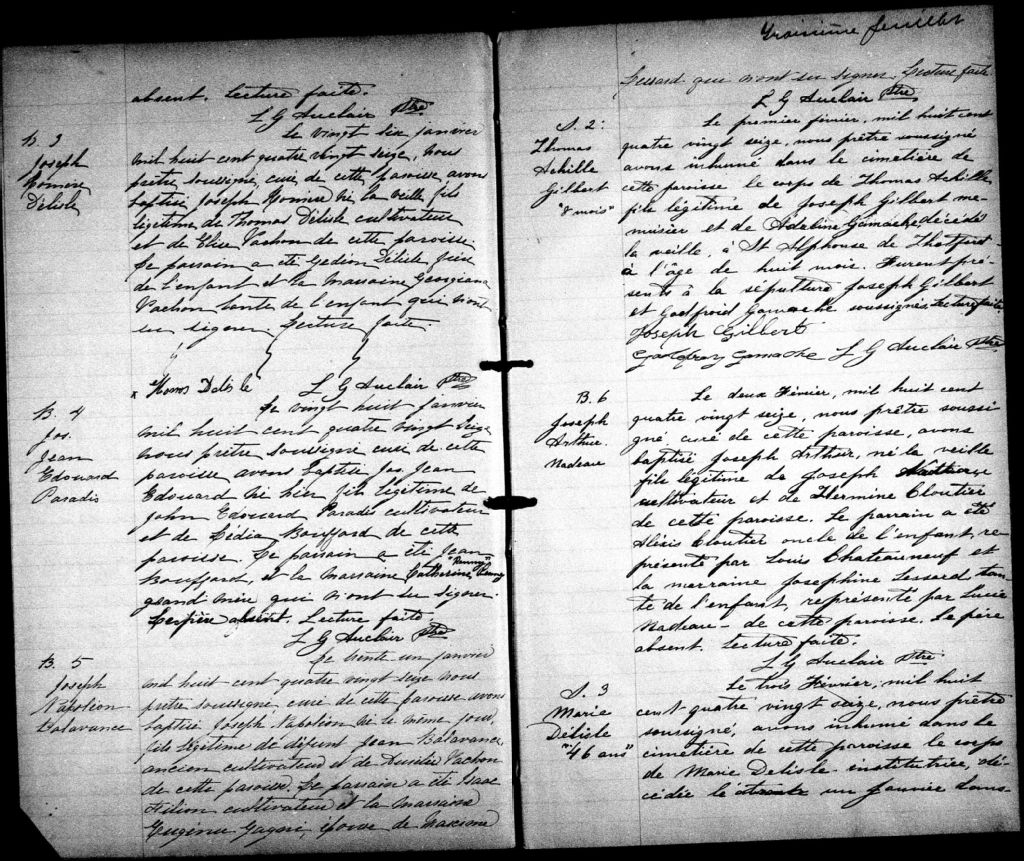 absent. Lecture faite.
L G Auclair Ptre
B. 3
Joseph
Délisle
Le vingt six janvier
mil huit cent quatre vingt seize, nous
prêtre soussigné, curé de cette paroisse avons
baptisé Joseph né la veille fils
légitime de Thomas Délisle cultivateur
et de Elise Vachon de cette paroisse.
Le parrain a été Gedéon Délisle frère
de l'enfant et la marraine Georgiana
Vachon tante de l'enfant qui n'ont
su signer. Lecture faite.
x Thomas Delisle L G Auclair Ptre
B. 4
Jos.
Jean
Edouard
Paradis
Le vingt huit janvier
mil huit cent quatre vingt seize
nous prêtre soussigné curé de cette
paroisse avons baptisé Jos. Jean
Edouard né hier fils légitime de
John Edouard Paradis cultivateur
et de Lédia Bouffard de cette
paroisse. Le parrain a été Jean
Bouffard, et la marraine Catherine
grand mère qui n'ont su signer.
Le père absent. Lecture faite.
L G Auclair Ptre
B. 5
Joseph
Napoléon
Balavance
Le trente un janvier
mil huit cent quatre vingt seize nous
prêtre soussigné curé de cette paroisse avons
baptisé Joseph Napoléon né le même jour,
fils légitime de défunt Jean Balavance,
ancien cultivateur et de Vachon
de cette paroisse. Le parrain a été Isaac
Filion cultivateur et la marraine
Eugénie Gagné, épouse de
Troisième feuillet
Lessard qui n'ont su signer. Lecture faite
L G Auclair Ptre
S. 2:
Thomas
Achille
Gilbert
"8 mois"
Le premier février, mil huit cent
quatre vingt seize, nous prêtre soussigné
avons inhumé dans le cimetière de
cette paroisse le corps de Thomas Achille,
fils légitime de Joseph Gilbert me-
nusier et de Adéline Gamache, décédé
la veille, à St Alphonse de Thetford
à l'âge de huit mois. Furent pré-
sents à la sépulture Joseph Gilbert
et Godfroid Gamache soussignés. Lecture faite.
Joseph Gilbert
Godfray Gamache L G Auclair Ptre
B. 6
Joseph
Arthur
Nadeau
Le deux Février, mil huit cent
quatre vingt seize, nous prêtre soussi
gné curé de cette paroisse, avons
baptisé Joseph Arthur, né la veille
fils légitime de Joseph
cultivateur et de Hermine Cloutier
de cette paroisse. Le parrain a été
Alexis Cloutier oncle de l'enfant, re
présenté par Louis Chateauneuf et
la marraine Josephine Lessard tan-
te de l'enfant, représenté par Lucie
Nadeau de cette paroisse. Le père
absent. Lecture faite.
L G Auclair Ptre
S. 3
Marie
Délisle
"46 ans"
Le trois Février, mil huit
cent quatre vingt seize, nous prêtre
soussigné, avons inhumé dans le
cimetière de cette paroisse le corps
de Marie Delisle institutrice, dé-
cédée le trente un janvier dans